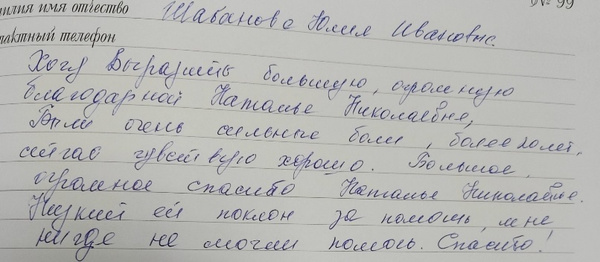 илия имя отчество Шабанова Юлия Ивановна. № 99
тактный телефон
Хочу Выразить большую, огромную
благодарной Наталье Николаевне,
Были очень сильные боли, более лет,
сейчас чувствую хорошо. Большое,
огромное спасибо Наталье Николаевне.
Низкий ей поклон за помощь, мне
нигде не могли помочь. Спасибо!